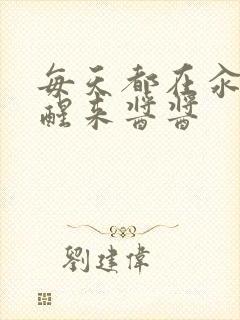 每天都在汆
醒来酱酱
劉建偉